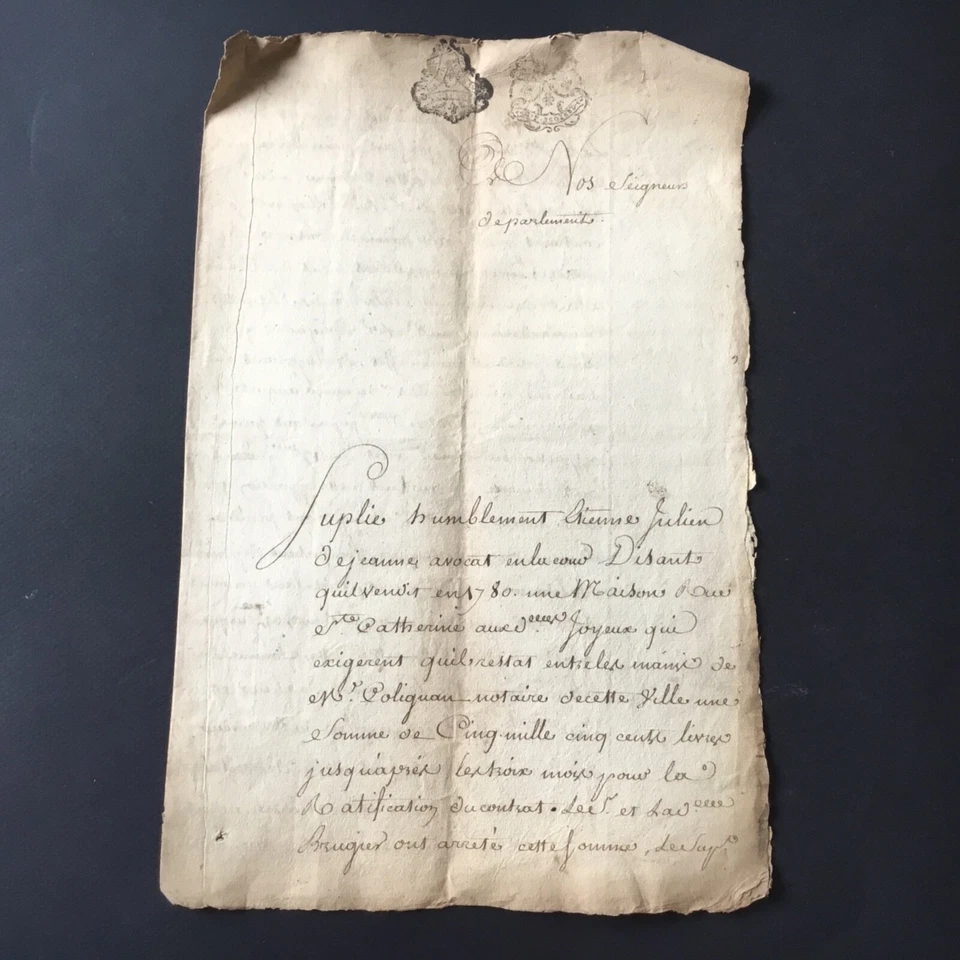 A Nos Seigneurs
de parlement.
Suplie humblement Etienne Julien
dejeanne, avocat en la cour Disant
quil vendit en 1780. une Maison Rue
Ste. Catherine aux dlles. Joyeux qui
exigerent quil restat entre les mains de
Mr. Colignan notaire de cette Ville une
Somme de Cinq mille cinq cents livres
jusqu'aprés les trois mois pour la
Ratification du contrat. Le Sr. et La dlle
Brugier ont arreté cette Somme, Le Supt.